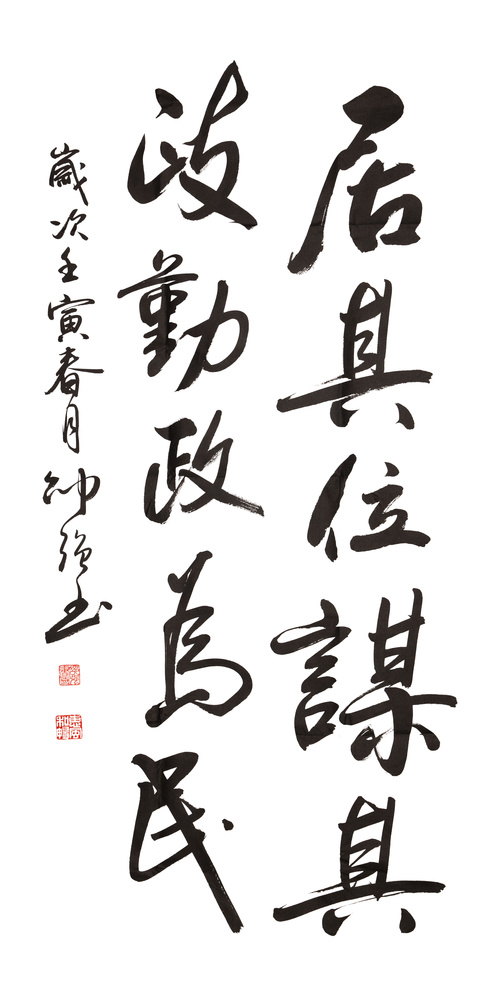 居其位謀其
政勤政為民
歲次壬寅春月帥強书